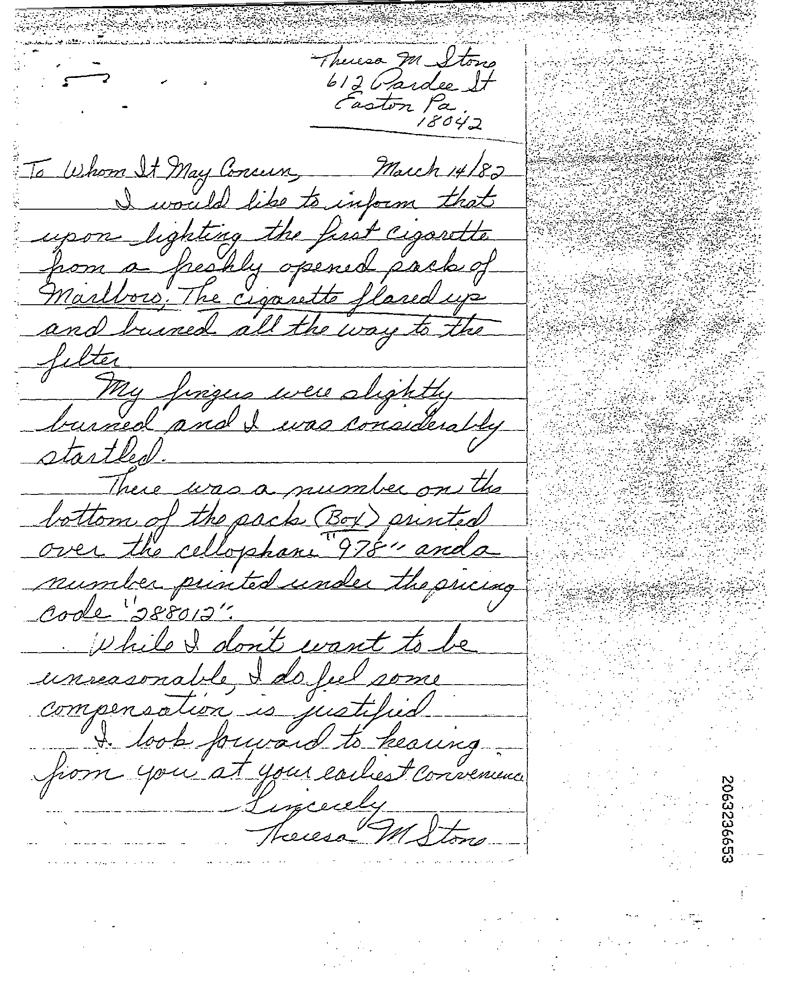 Theresa M Stone
612 Pardee St
Easton Pa.
18042
To Whom It May Concern, March 14/82
I would like to inform that
upon lighting the first cigarette
from a freshly opened pack of
Marlboro; The cigarette flared up
and burned all the way to the
filter.
My fingers were slightly
burned and I was considerably
startled.
There was a number on the
bottom of the pack (Box) printed
over the cellophane "978" and a
number printed under the pricing
code "288012".
While I don't want to be
unreasonable, I do feel some
compensation is justified
I look forward to hearing
from you at your earliest convenience
Sincerely
Theresa M Stone
2063236653